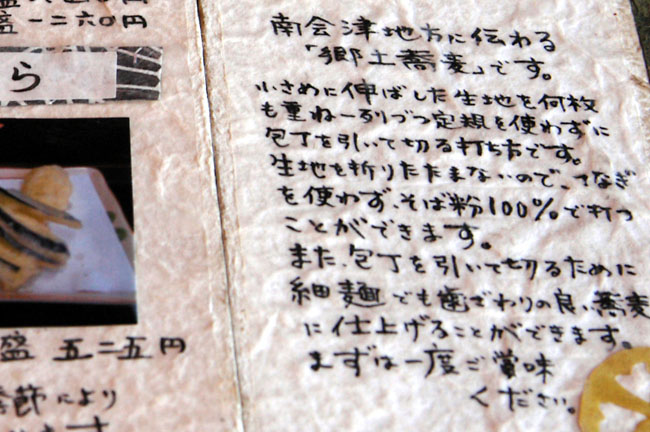 盛一二六〇円
ら
盛 五二五円
季節により
南会津地方に伝わる
「郷土蕎麦」です。
小さめに伸ばした生地を何枚
も重ね一列づつ定規を使わずに
包丁を引いて切る打ち方です。
生地を折りたたまないので、つなぎ
を使わず、そば粉100%で打つ
ことができます。
また、包丁を引いて切るために
細麺でも歯ざわりの良い蕎麦
に仕上げることができます。
まずは一度ご賞味
ください。